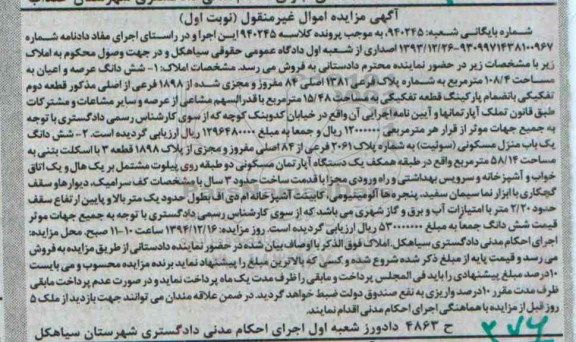 آگهی مزایده اموال غیرمنقول (نوبت اول)
شماره بایگانی شعبه: ۹۴۰۲۴۵، به موجب پرونده کلاسه ۹۴۰۲۴۵ این اجرا و در راستای اجرای مفاد دادنامه شماره
۹۳۰۹۹۷۱۴۳۸۱۰۰۹۶۷-۱۳۹۳/۱۲/۲۶ اصداری از شعبه اول دادگاه عمومی حقوقی سیاهکل و در جهت وصول محکوم به املاک
زیر با مشخصات زیر در حضور نماینده محترم دادستانی به فروش می رسد. مشخصات املاک: ۱- شش دانگ عرصه و اعیان به
مساحت ۱۰۸/۴ مترمربع به شماره پلاک فرعی ۱۳۸۱ اصلی ۸۴ مفروز و مجزی شده از ۱۸۹۸ فرعی از اصلی مذکور قطعه دوم
تفکیکی بانضمام پارکینگ قطعه تفکیکی به مساحت ۱۵/۴۸ مترمربع با قدرالسهم مشاعی از عرصه و سایر مشاعات و مشترکات
طبق قانون تملک آپارتمانها و آیین نامه اجرایی آن واقع در خیابان کدوبنک کوچه که از سوی کارشناس رسمی دادگستری با توجه
به جمیع جهات موثر از قرار هر مترمربعی ۱۲۰۰۰۰۰۰ ریال و جمعا به مبلغ ۱۲۹۶۴۸۰۰۰۰ ریال ارزیابی گردیده است. ۲- شش دانگ
یک باب منزل مسکونی (سوئیت) به شماره پلاک ۲۰۶۱ فرعی از ۸۴ اصلی مفروز و مجزی از پلاک ۱۸۹۸ قطعه ۳ با اسکلت بتنی به
مساحت ۵۸/۱۴ مترمربع واقع در طبقه همکف یک دستگاه آپارتمان مسکونی دو طبقه روی پیلوت مشتمل بر یک هال و یک اتاق
خواب و آشپزخانه و سرویس بهداشتی و راه ورودی مجزا با قدمت ساخت حدود ۳ سال با مشخصات کف سرامیک، دیوارها و سقف
گچکاری با ابزار نما سیمان سفید، پنجره ها آلومینیومی، کابینت آشپزخانه ام دی اف بطول حدود یک متر بالا و پایین ارتفاع سقف
حدود ۲/۲۰ متر با امتیازات آب و برق و گاز شهری می باشد، که از سوی کارشناس رسمی دادگستری با توجه به جمیع جهات موثر
قیمت شش دانگ جمعا به مبلغ ۵۳۰۰۰۰۰۰۰ ریال ارزیابی گردیده است. روز مزایده: ۱۳۹۴/۱۲/۱۶ ساعت ۱۰-۱۱ صبح. محل مزایده:
اجرای احکام مدنی دادگستری سیاهکل. املاک فوق الذکر با اوصاف بیان شده در حضور نماینده دادستانی از طریق مزایده به فروش
می رسد و قیمت پایه از مبلغ ذکر شده شروع شده و کسی که بالاترین مبلغ را پیشنهاد نماید برنده مزایده محسوب و می بایست
۱۰درصد مبلغ پیشنهادی را باید فی المجلس پرداخت و مابقی را ظرف مدت یک ماه پرداخت نماید و در صورت عدم پرداخت مابقی
ظرف مدت مقرر ۱۰درصد واریزی به نفع صندوق دولت ضبط خواهد گردید. در ضمن علاقه مندان می توانند جهت بازدید از ملک ۵
روز قبل از مزایده با هماهنگی اجرای احکام مدنی اقدام نمایند.
ح ۴۸۶۳ دادورز شعبه اول اجرای احکام مدنی دادگستری شهرستان سیاهکل